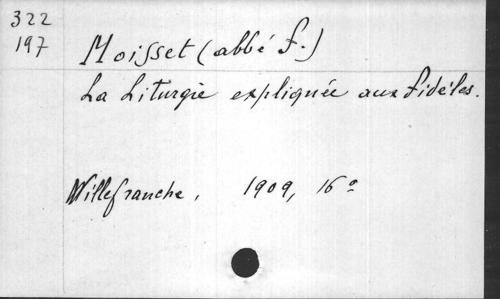 322
197
Moisset (abbé F.)
La Liturgie expliquée aux Fidéles.
Villefranche, 1909, 16º